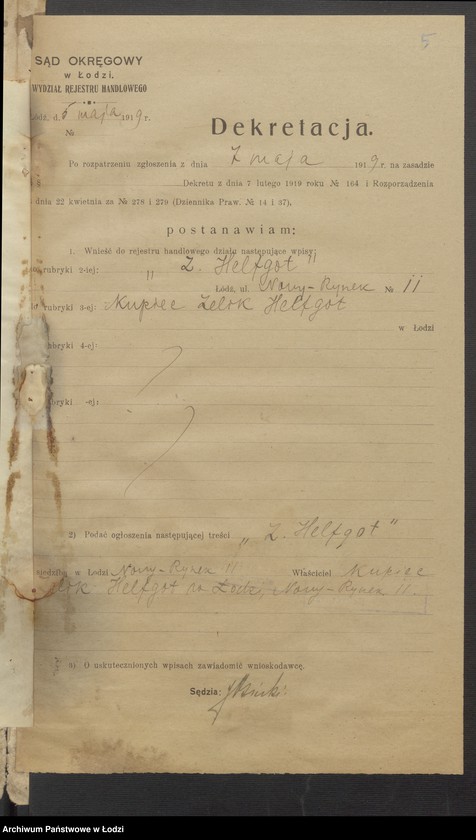 5
SĄD OKRĘGOWY
w Łodzi.
WYDZIAŁ REJESTRU HANDLOWEGO
Łódź, d. 5 maja 1919 r.
№
Dekretacja.
Po rozpatrzeniu zgłoszenia z dnia 7 maja 1919 r. na zasadzie
Dekretu z dnia 7 lutego 1919 roku № 164 i Rozporządzenia
dnia 22 kwietnia za № 278 i 279 (Dziennika Praw. № 14 i 37).
postanawiam:
1. Wnieść do rejestru handlowego działu następujące wpisy:
rubryki 2-iej: „Z. Helfgot"
Łódź, ul. Nowy-Rynek № 11
rubryki 3-ej: Kupiec Zelok Helfgot
w Łodzi
rubryki 4-ej:
rubryki -ej:
2) Podać ogłoszenia następującej treści „Z. Helfgot"
w Łodzi Nowy-Rynek 11 Właściciel Kupiec
Helfgot Nowy-Rynek 11.
3) O uskutecznionych wpisach zawiadomić wnioskodawcę.
Sędzia:
Archiwum Państwowe w Łodzi